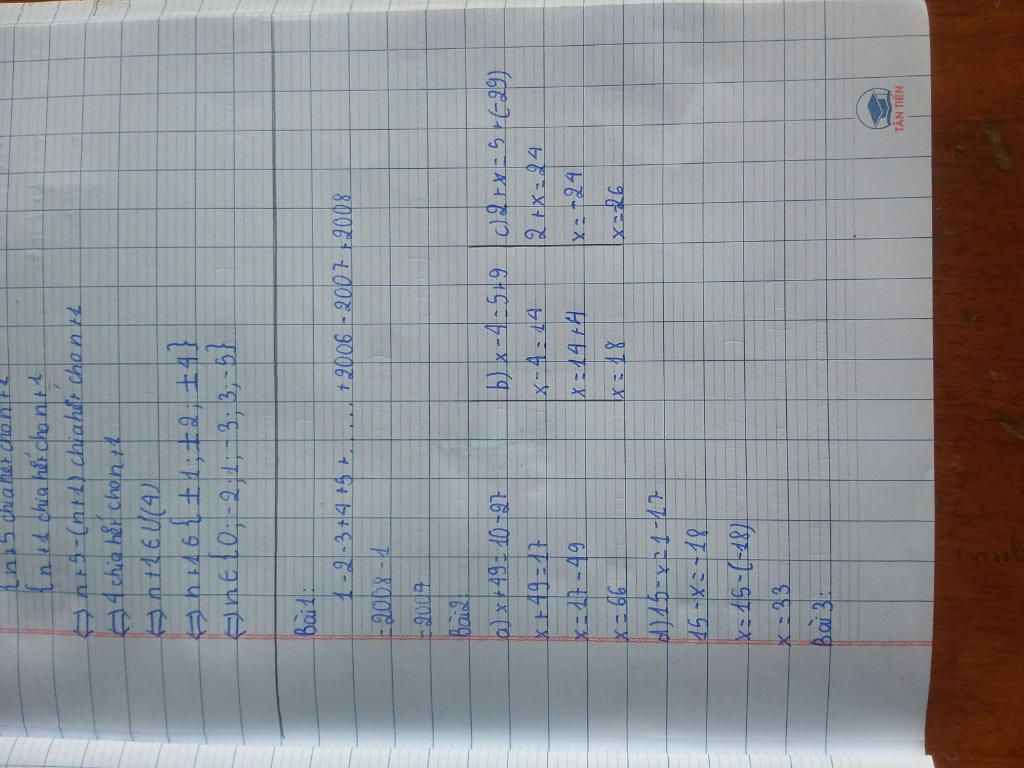 { n+5 chia hết cho n+1
{ n+1 chia hết cho n+1
⇔ n+5-(n+1) chia hết cho n+1
⇔ 4 chia hết cho n+1
⇔ n+1 ∈ Ư(4)
⇔ n+1 ∈ { ±1; ±2; ±4 }
⇔ n ∈ { 0; -2; 1; -3; 3; -5 }
Bài 1:
1-2-3+4+5+.......+2006-2007+2008
=2008-1
=2007
Bài 2:
a) x+49=10-27
x+49=-17
x=-17-49
x=-66
b) x-4=5+9
x-4=14
x=14+4
x=18
c) 2+x=5+(-29)
2+x=24
x=-24
x=-26
d) 15-x=1-17
15-x=-18
x=15-(-18)
x=33
Bài 3:
TÂN TIẾN